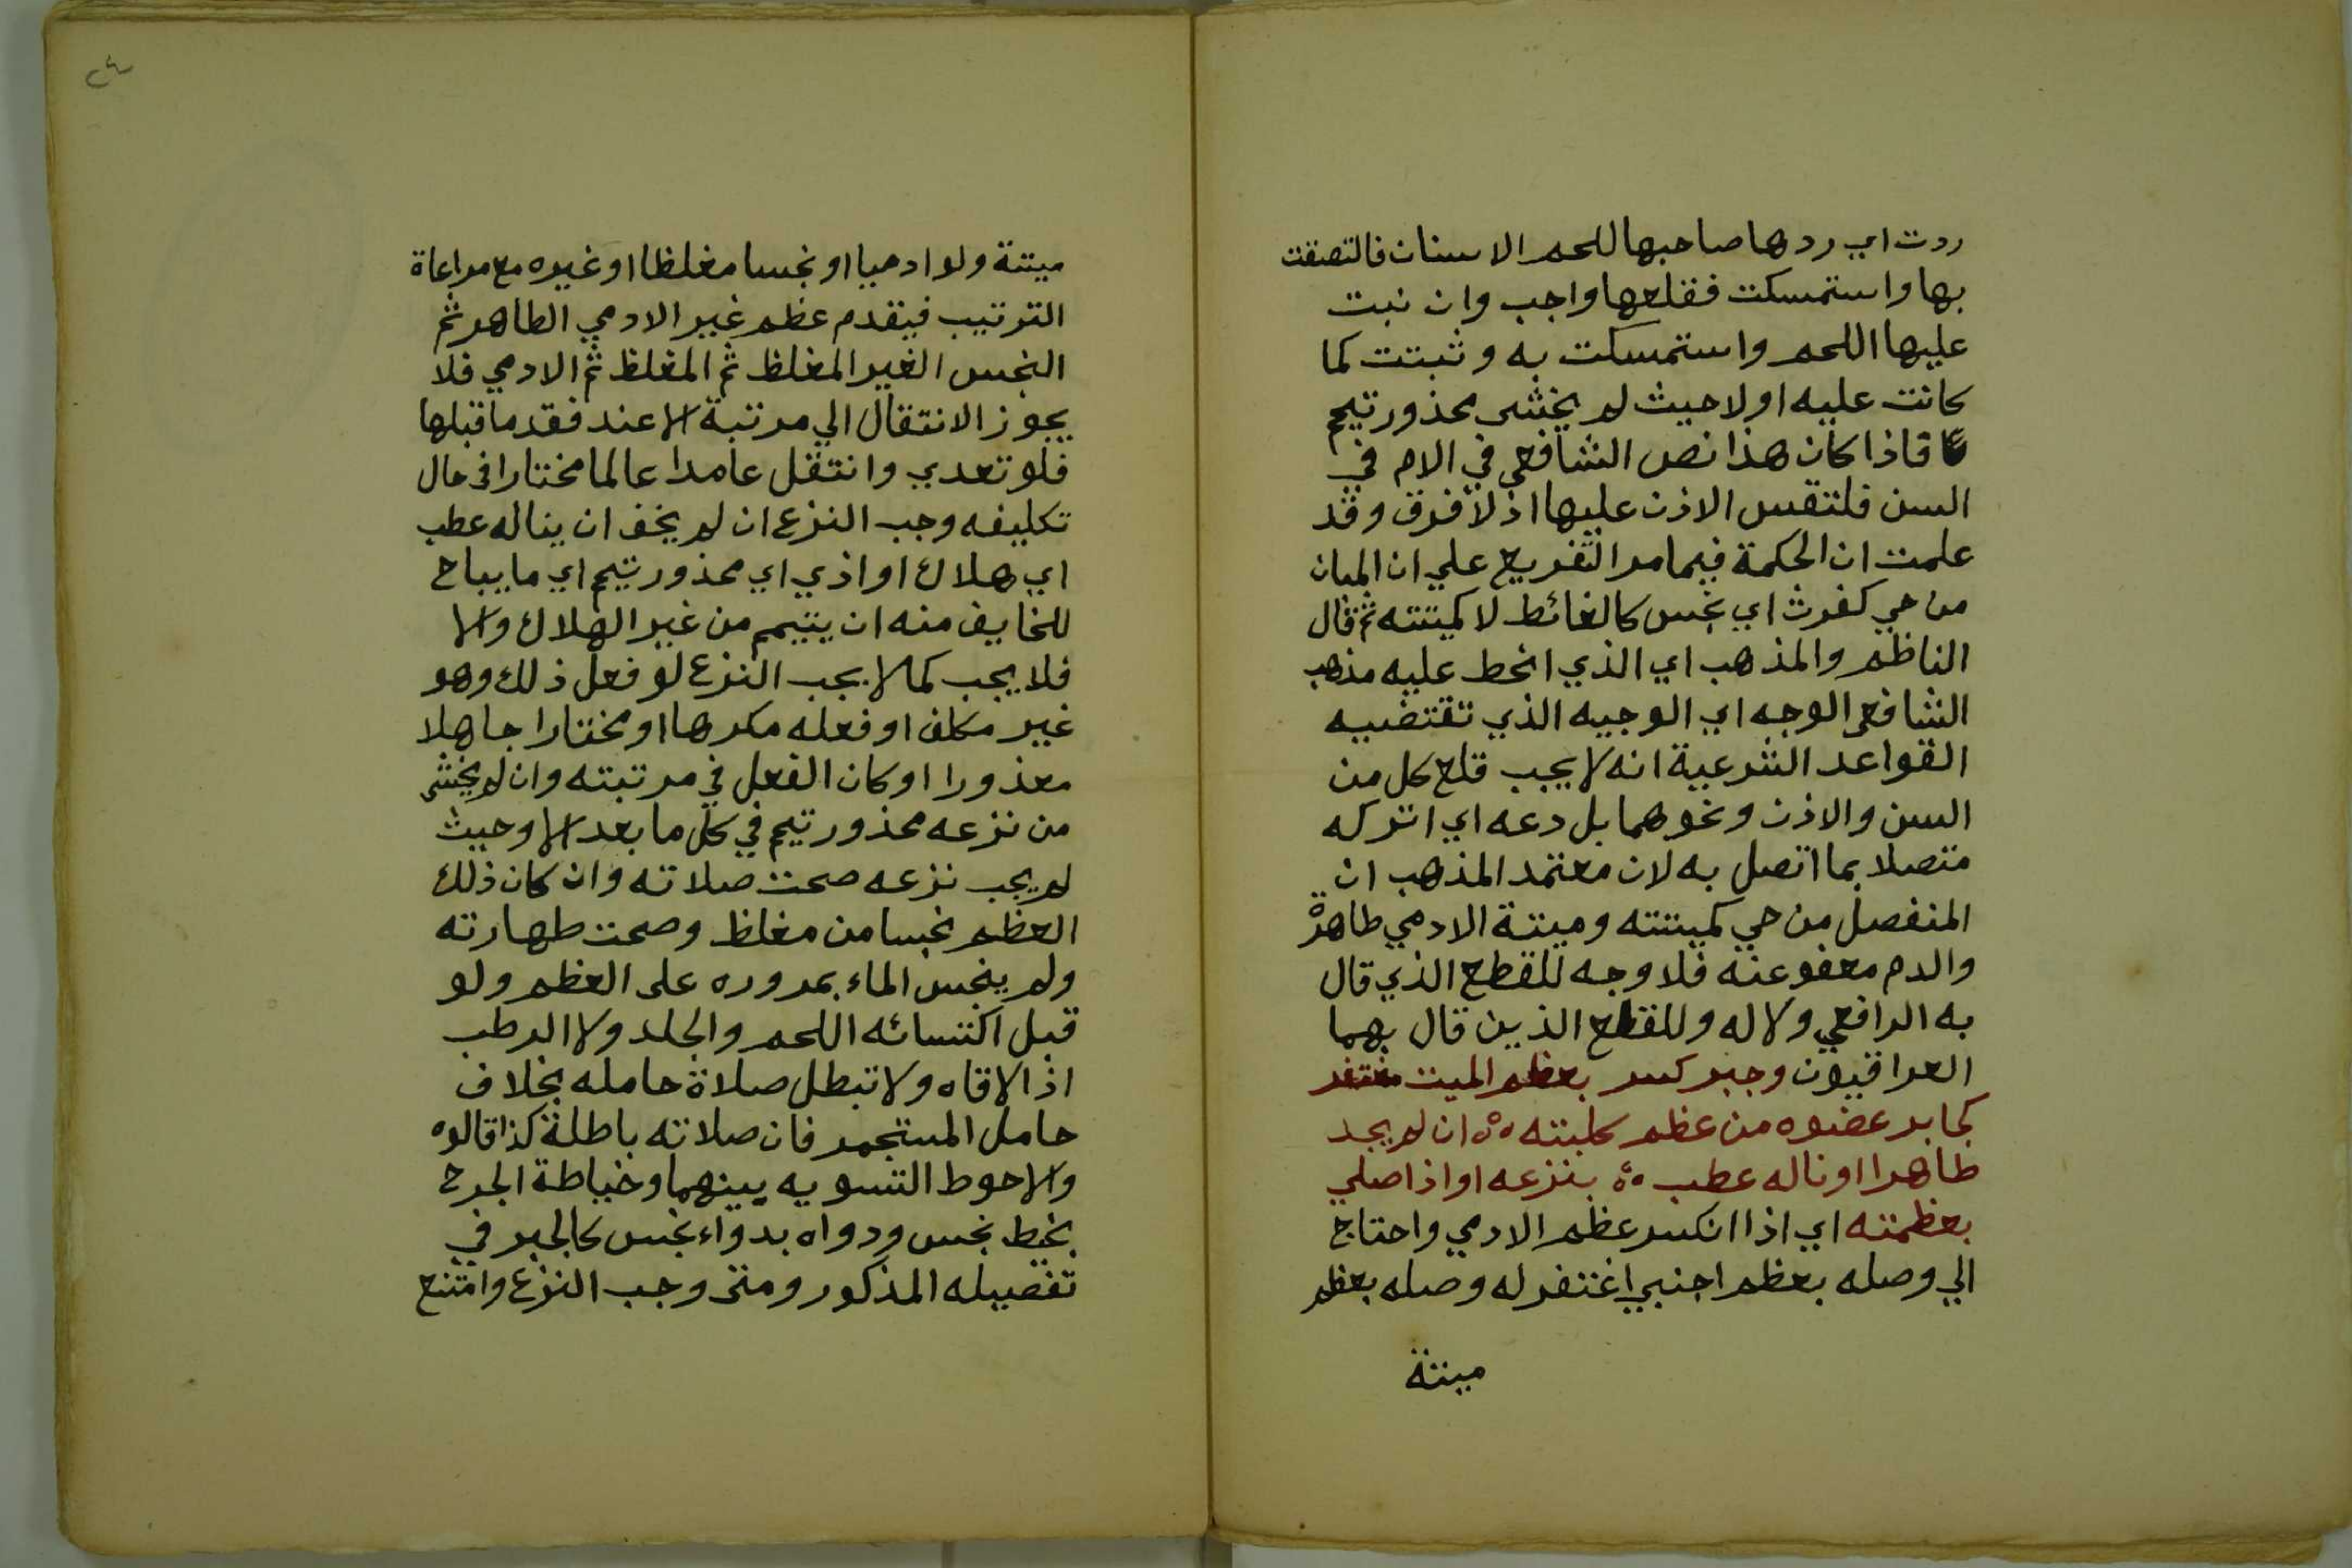 ردت اي ردها صاحبها للحم الاسنان فالتصقت
بها واستمسكت فقلعها واجب وان نبت
عليها اللحم واستمسكت به وثبتت كما
كانت عليه اولا حيث لم يخشى محذور تيمم
فاذا كان هذا نص الشافعي في الام في
السن فلتقس الاذن عليها اذ لا فرق وقد
علمت ان الحكمة فيما مر التفريع علي ان المبان
من حي كفرث اي نجس كالغائط لا كميتته ثم قال
الناظم والمذهب اي الذي انحط عليه مذهب
الشافعي الوجه اي الوجيه الذي تقتضيه
القواعد الشرعية انه لا يجب قلع كل من
السن والاذن ونحوهما بل دعه اي اتركه
متصلا بما اتصل به لان معتمد المذهب ان
المنفصل من حي كميتته وميتة الادمي طاهرة
والدم معفو عنه فلا وجه للقطع الذي قال
به الرافعي ولا له وللقطع الذين قال بهما
العراقيون وجبر كسر بعظم الميت مغتفر
كجابر عضوه من عظم كلبته ان لم يجد
طاهرا او ناله عطب بنزعه او اذا صلي
بعظمته اي اذا انكسر عظم الادمي واحتاج
الي وصله بعظم اجنبي اغتفر له وصله بعظم
ميتة
٢٤
ميتة ولو ادميا او نجسا مغلظا او غيره مع مراعاة
الترتيب فيقدم عظم غير الادمي الطاهر ثم
النجس الغير المغلظ ثم المغلظ ثم الادمي فلا
يجوز الانتقال الي مرتبة الا عند فقد ما قبلها
فلو تعدي وانتقل عامدا عالما مختارا في حال
تكليفه وجب النزع ان لم يخف ان يناله عطب
اي هلاك او اذي اي محذور تيمم اي ما يباح
للخايف منه ان يتيمم من غير الهلاك والا
فلا يجب كما لا يجب النزع لو فعل ذلك وهو
غير مكلف او فعله مكرها او مختارا جاهلا
معذورا او كان الفعل في مرتبته وان لم يخشى
من نزعه محذور تيمم في كل ما بعد الا وحيث
لم يجب نزعه صحت صلاته وان كان ذلك
العظم نجسا من مغلظ وصحت طهارته
ولم ينجس الماء بمروره على العظم ولو
قبل اكتسائه اللحم والجلد ولا الرطب
اذا لاقاه ولا تبطل صلاة حامله بخلاف
حامل المستجمر فان صلاته باطلة كذا قالوه
والاحوط التسويه بينهما وخياطة الجرح
بخيط نجس ودواه بدواء نجس كالجبر في
تفصيله المذكور ومتى وجب النزع وامتنع